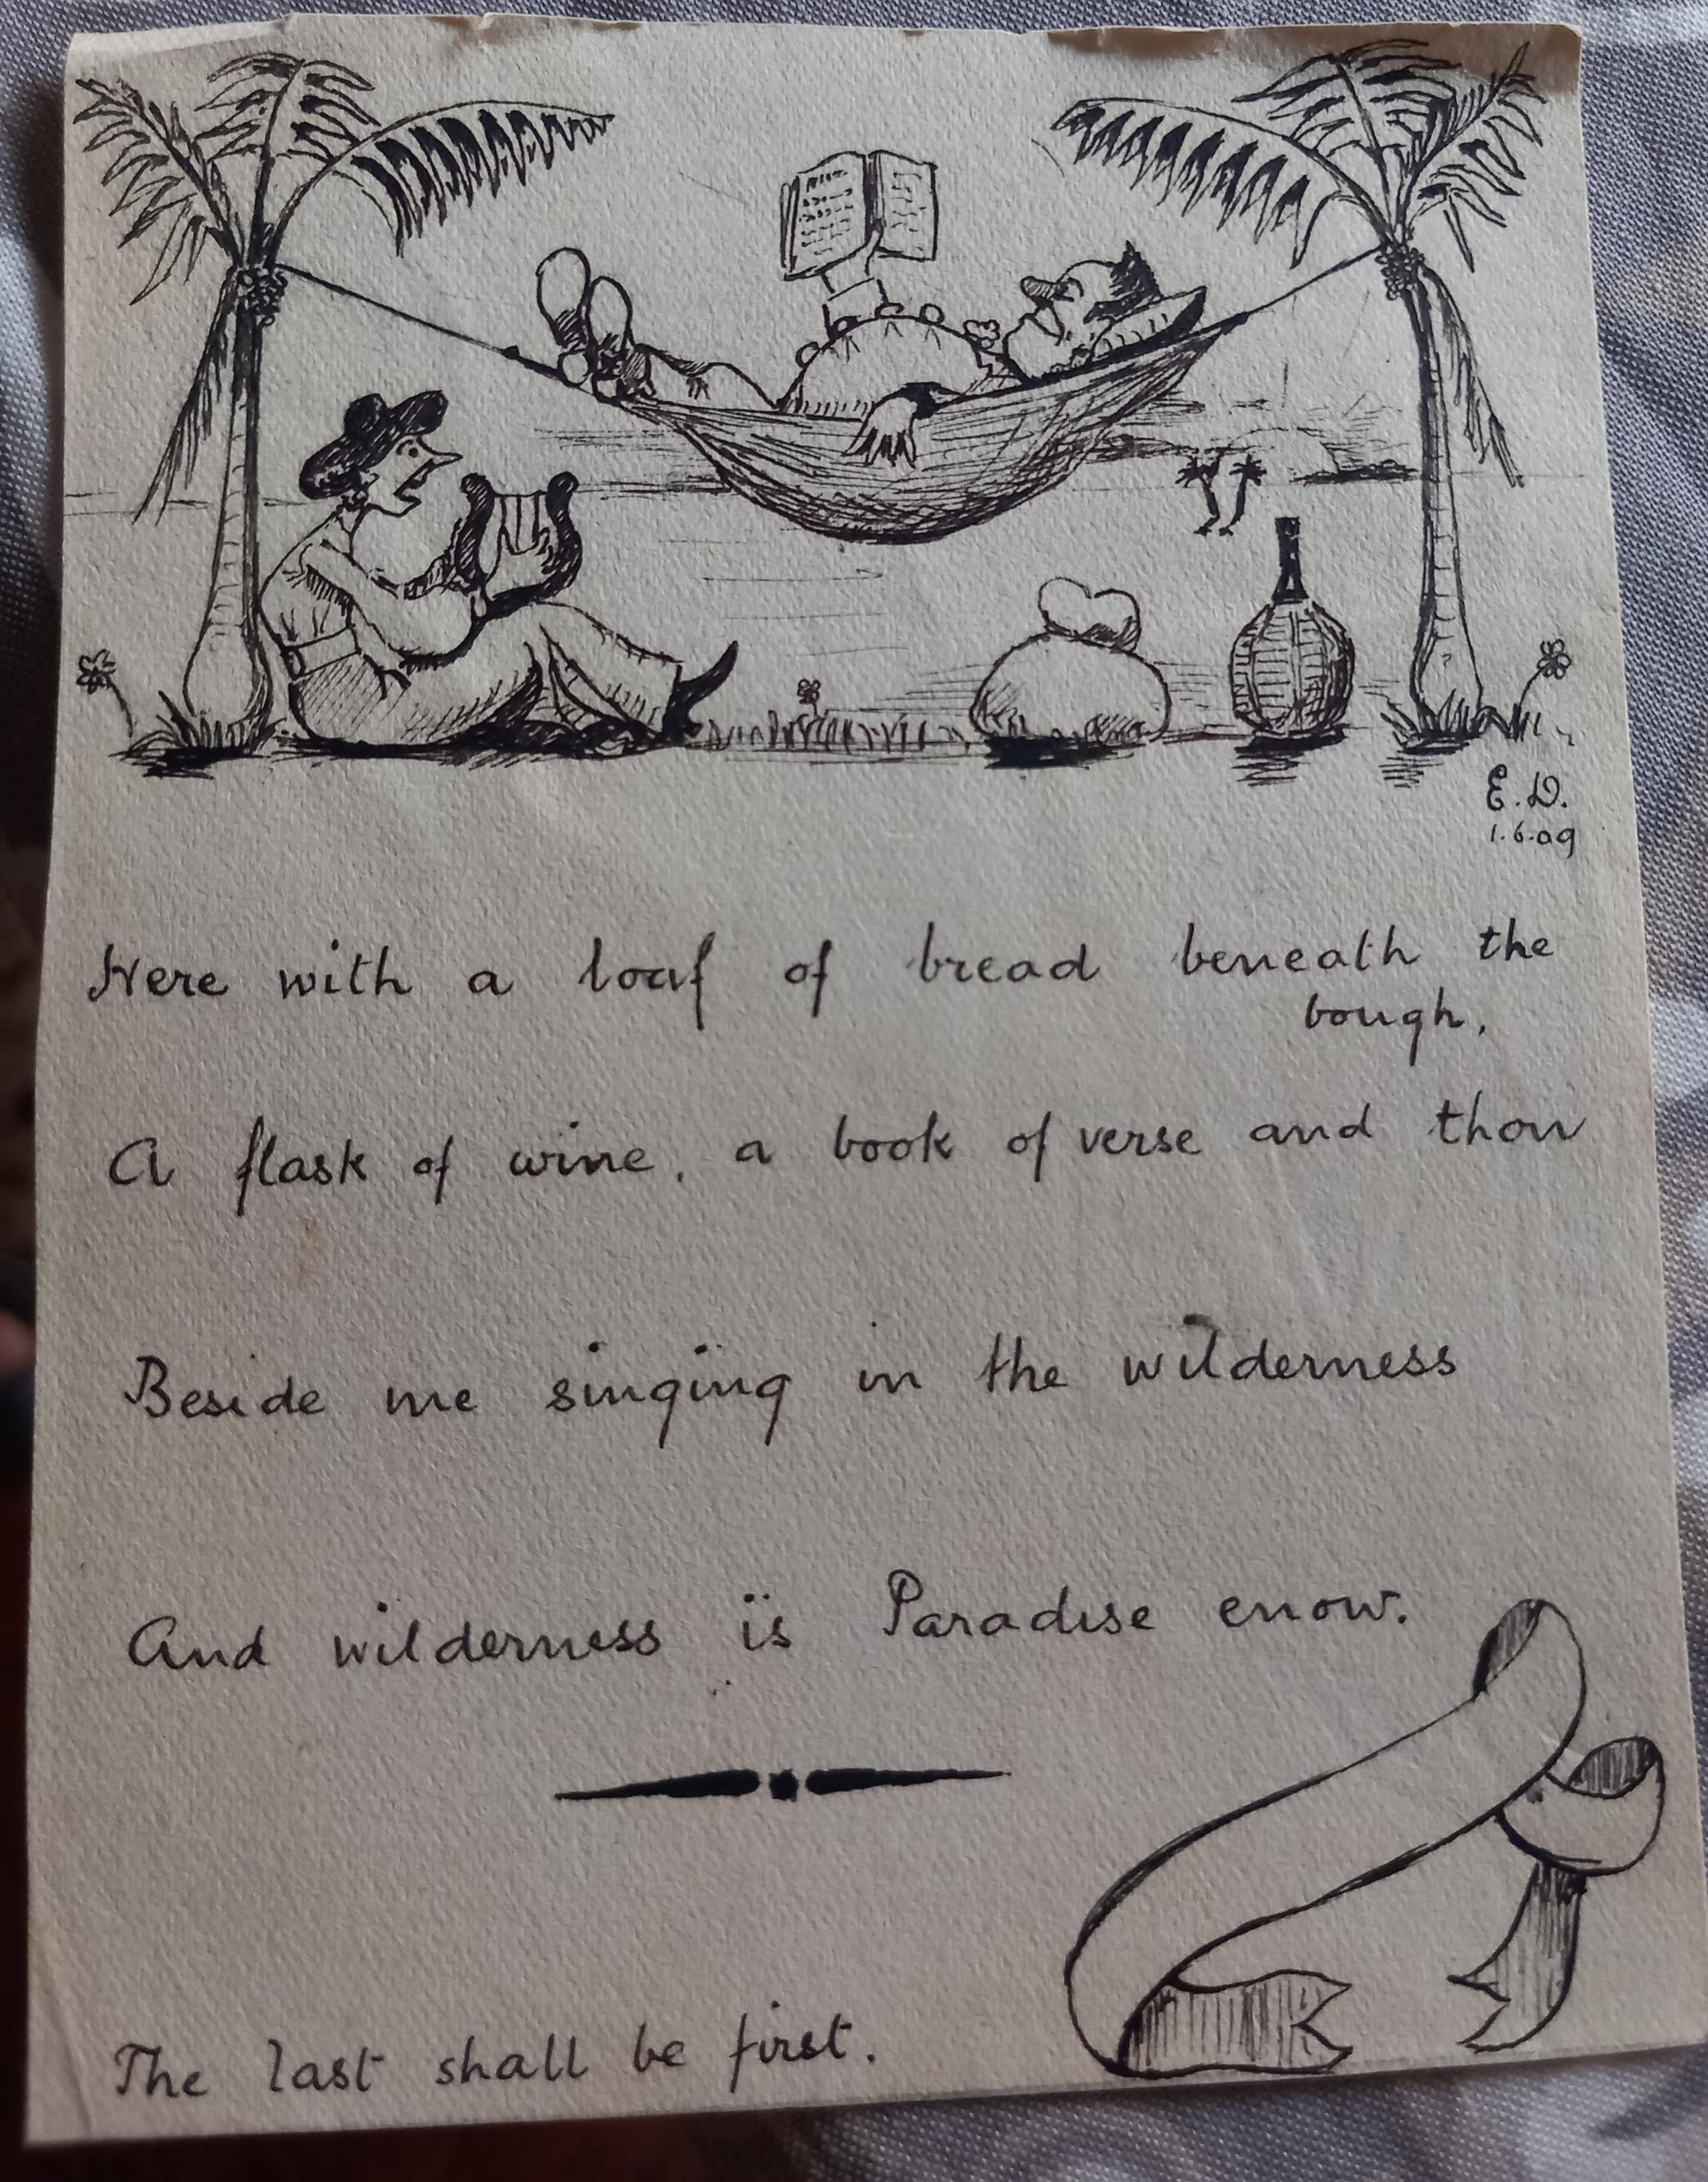 E.D.
1.6.09
Here with a loaf of bread beneath the
bough,
A flask of wine, a book of verse and thou
Beside me singing in the wilderness
And wilderness is Paradise enow.
The last shall be first.